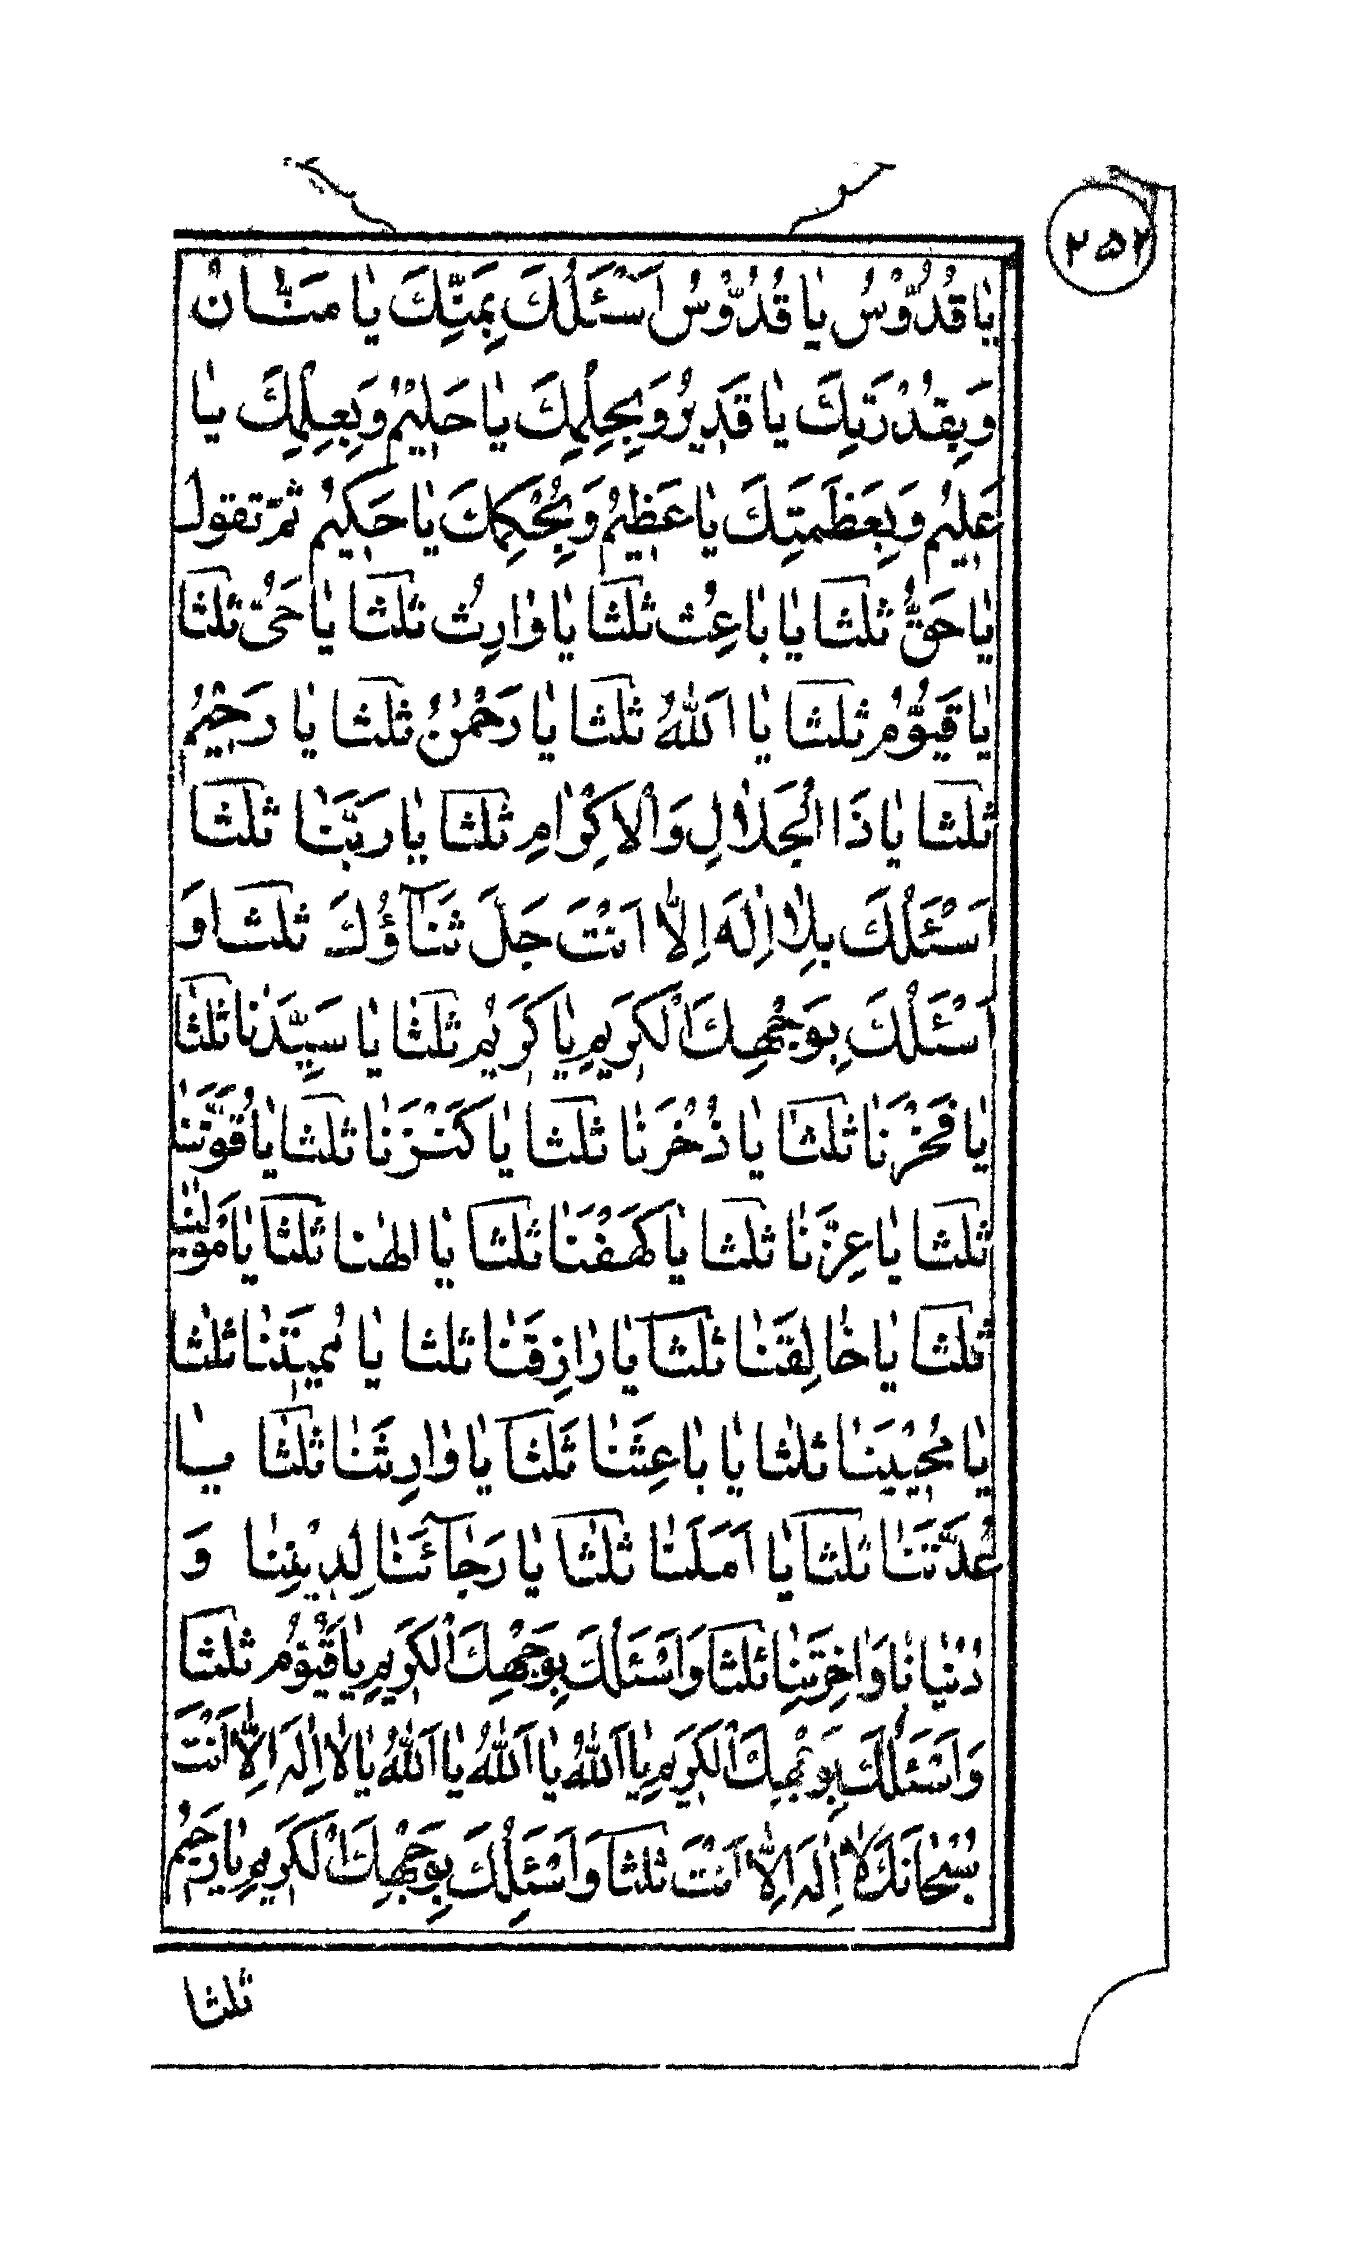 ۲۵۲
يٰا قُدُّوْسُ يٰا قُدُّوْسُ اَسْئَلُكَ بِمَنِّكَ يٰا مَنّٰانُ
وَبِقُدْرَتِكَ يٰا قَدِيْرُ وَبِحِلْمِكَ يٰا حَلِيْمُ وَبِعِلْمِكَ يٰا
عَلِيْمُ وَبِعَظَمَتِكَ يٰا عَظِيْمُ وَبِحُكْمِكَ يٰا حَكِيْمُ ثمّ تقول
يٰا حَقُّ ثلثا يٰا بٰاعِثُ ثلثا يٰا وٰارِثُ ثلثا يٰا حَىُّ ثلثا
يٰا قَيُّوْمُ ثلثا يٰا اَللّٰهُ ثلثا يٰا رَحْمٰنُ ثلثا يٰا رَحِيْمُ
ثلثا يٰا ذَا الْجَلاٰلِ وَالْاِكْرٰامِ ثلثا يٰا رَبَّنٰا ثلثا
اَسْئَلُكَ بِلاٰ اِلٰهَ اِلاّٰ اَنْتَ جَلَّ ثَنٰآؤُكَ ثلثا وَ
اَسْئَلُكَ بِوَجْهِكَ الْكَرِيْمِ يٰا كَرِيْمُ ثلثا يٰا سَيِّدَنٰا ثلثا
يٰا فَخْرَنٰا ثلثا يٰا ذُخْرَنٰا ثلثا يٰا كَنْزَنٰا ثلثا يٰا قُوَّتَنٰا
ثلثا يٰا عِزَّنٰا ثلثا يٰا كَهْفَنٰا ثلثا يٰا اِلٰهَنٰا ثلثا يٰا مَوْلٰينٰا
ثلثا يٰا خٰالِقَنٰا ثلثا يٰا رٰازِقَنٰا ثلثا يٰا مُمِيْتَنٰا ثلثا
يٰا مُحْيِيَنٰا ثلثا يٰا بٰاعِثَنٰا ثلثا يٰا وٰارِثَنٰا ثلثا يٰا
عُدَّتَنٰا ثلثا يٰا اَمَلَنٰا ثلثا يٰا رَجٰآئَنٰا لِدِيْنِنٰا وَ
دُنْيٰا نٰا وَاٰخِرَتِنٰا ثلثا وَاَسْئَلُكَ بِوَجْهِكَ الْكَرِيْمِ يٰا قَيُّوْمُ ثلثا
وَاَسْئَلُكَ بِوَجْهِكَ الْكَرِيْمِ يٰا اَللّٰهُ يٰا اَللّٰهُ يٰا اَللّٰهُ يٰا لاٰ اِلٰهَ اِلاّٰ اَنْتَ
سُبْحٰانَكَ لاٰ اِلٰهَ اِلاّٰ اَنْتَ ثلثا وَاَسْئَلُكَ بِوَجْهِكَ الْكَرِيْمِ يٰا رَحِيْمُ
ثلثا